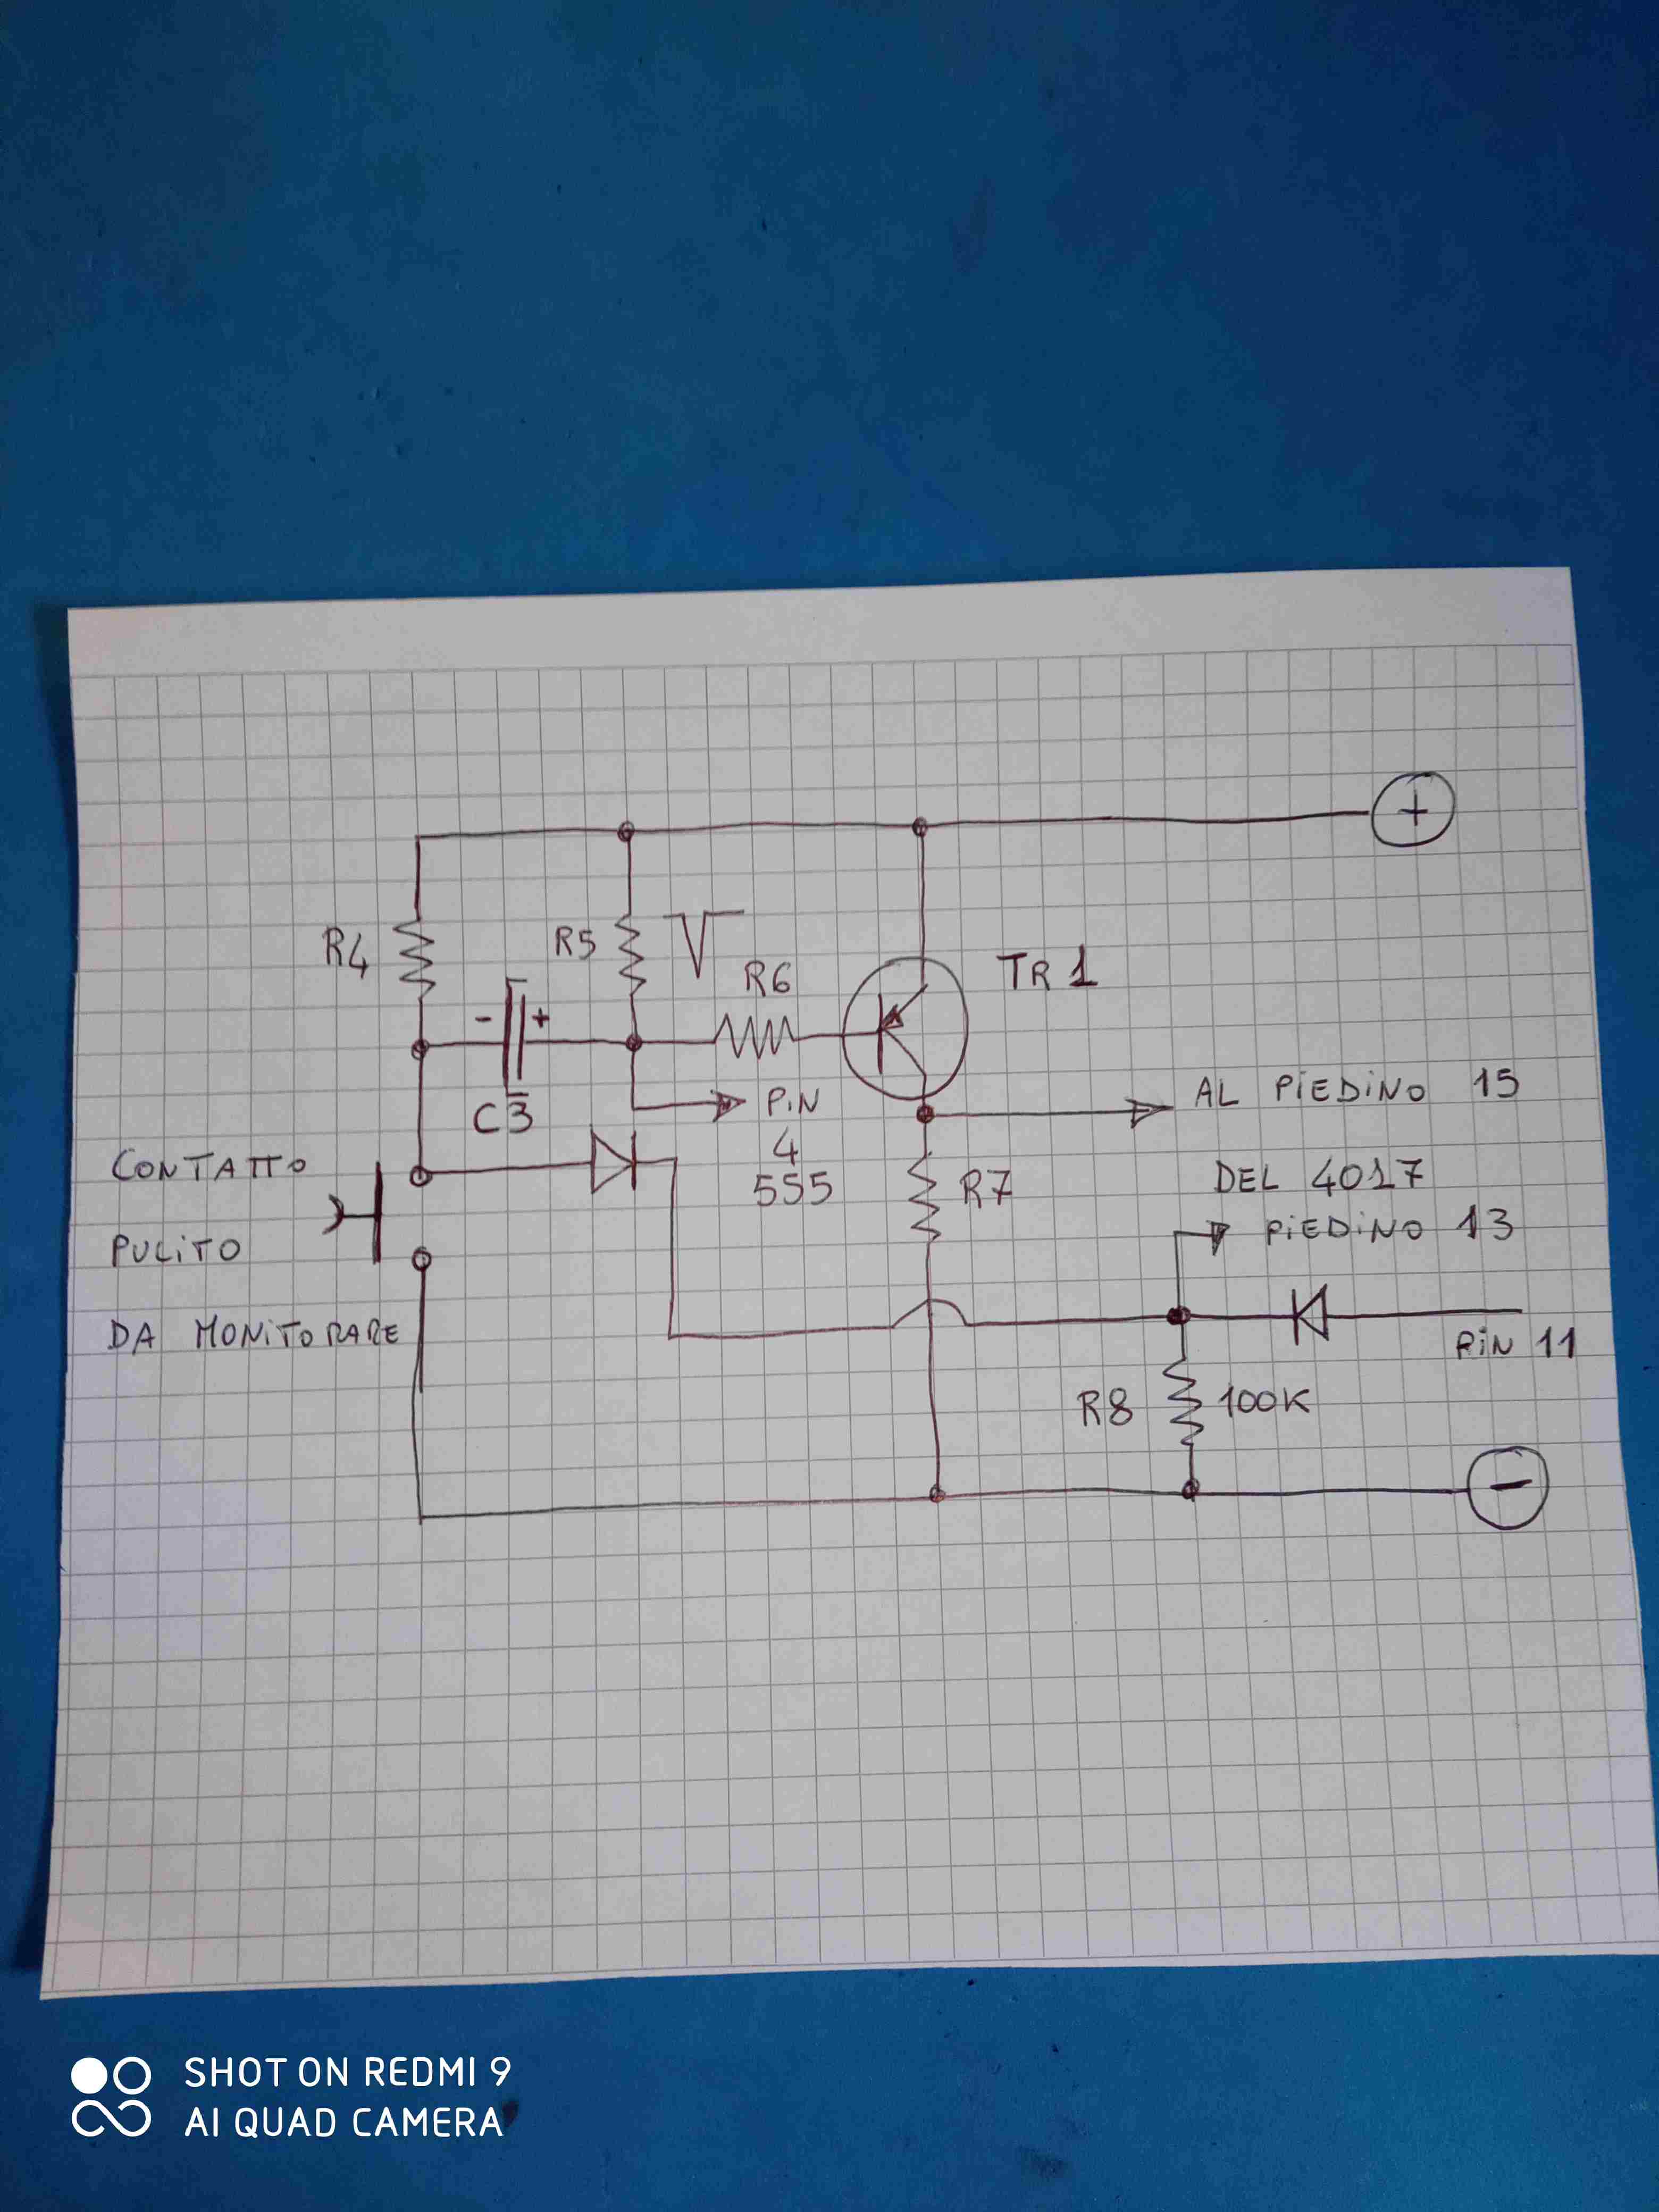 +
R4
R5
R6
TR 1
- +
C3
PiN
4
555
AL PiEDiNO 15
DEL 4017
PiEDiNO 13
CONTATTO
PULiTO
DA MONiTORARE
R7
PiN 11
R8 100K
-
SHOT ON REDMI 9
AI QUAD CAMERA